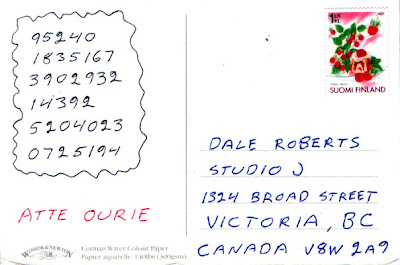 95240
1835167
3902932
14392
5204023
0725194
ATTE OURIE
WINSOR & NEWTON
Cotman Water Colour Paper
Papier aquarelle 140lbs (300gsm)
1 LK KL
SUOMI FINLAND
DALE ROBERTS
STUDIO J
1324 BROAD STREET
VICTORIA, BC
CANADA V8W 2A9